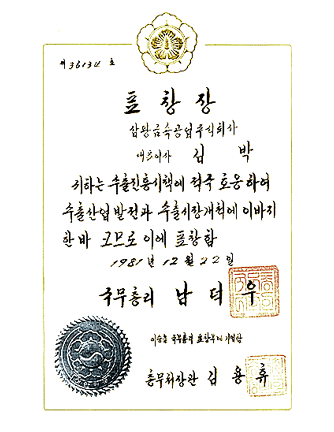 제 36134 호
표 창 장
삼왕금속공업주식회사
대표이사 심 박
귀하는 수출진흥시책에 적극 호응하여
수출산업 발전과 수출시장개척에 이바지
한 바 크므로 이에 표창함
1981년 12월 22일
국무총리 남 덕 우
이 증을 국무총리 표창부에 기입함
총무처장관 김 용 휴